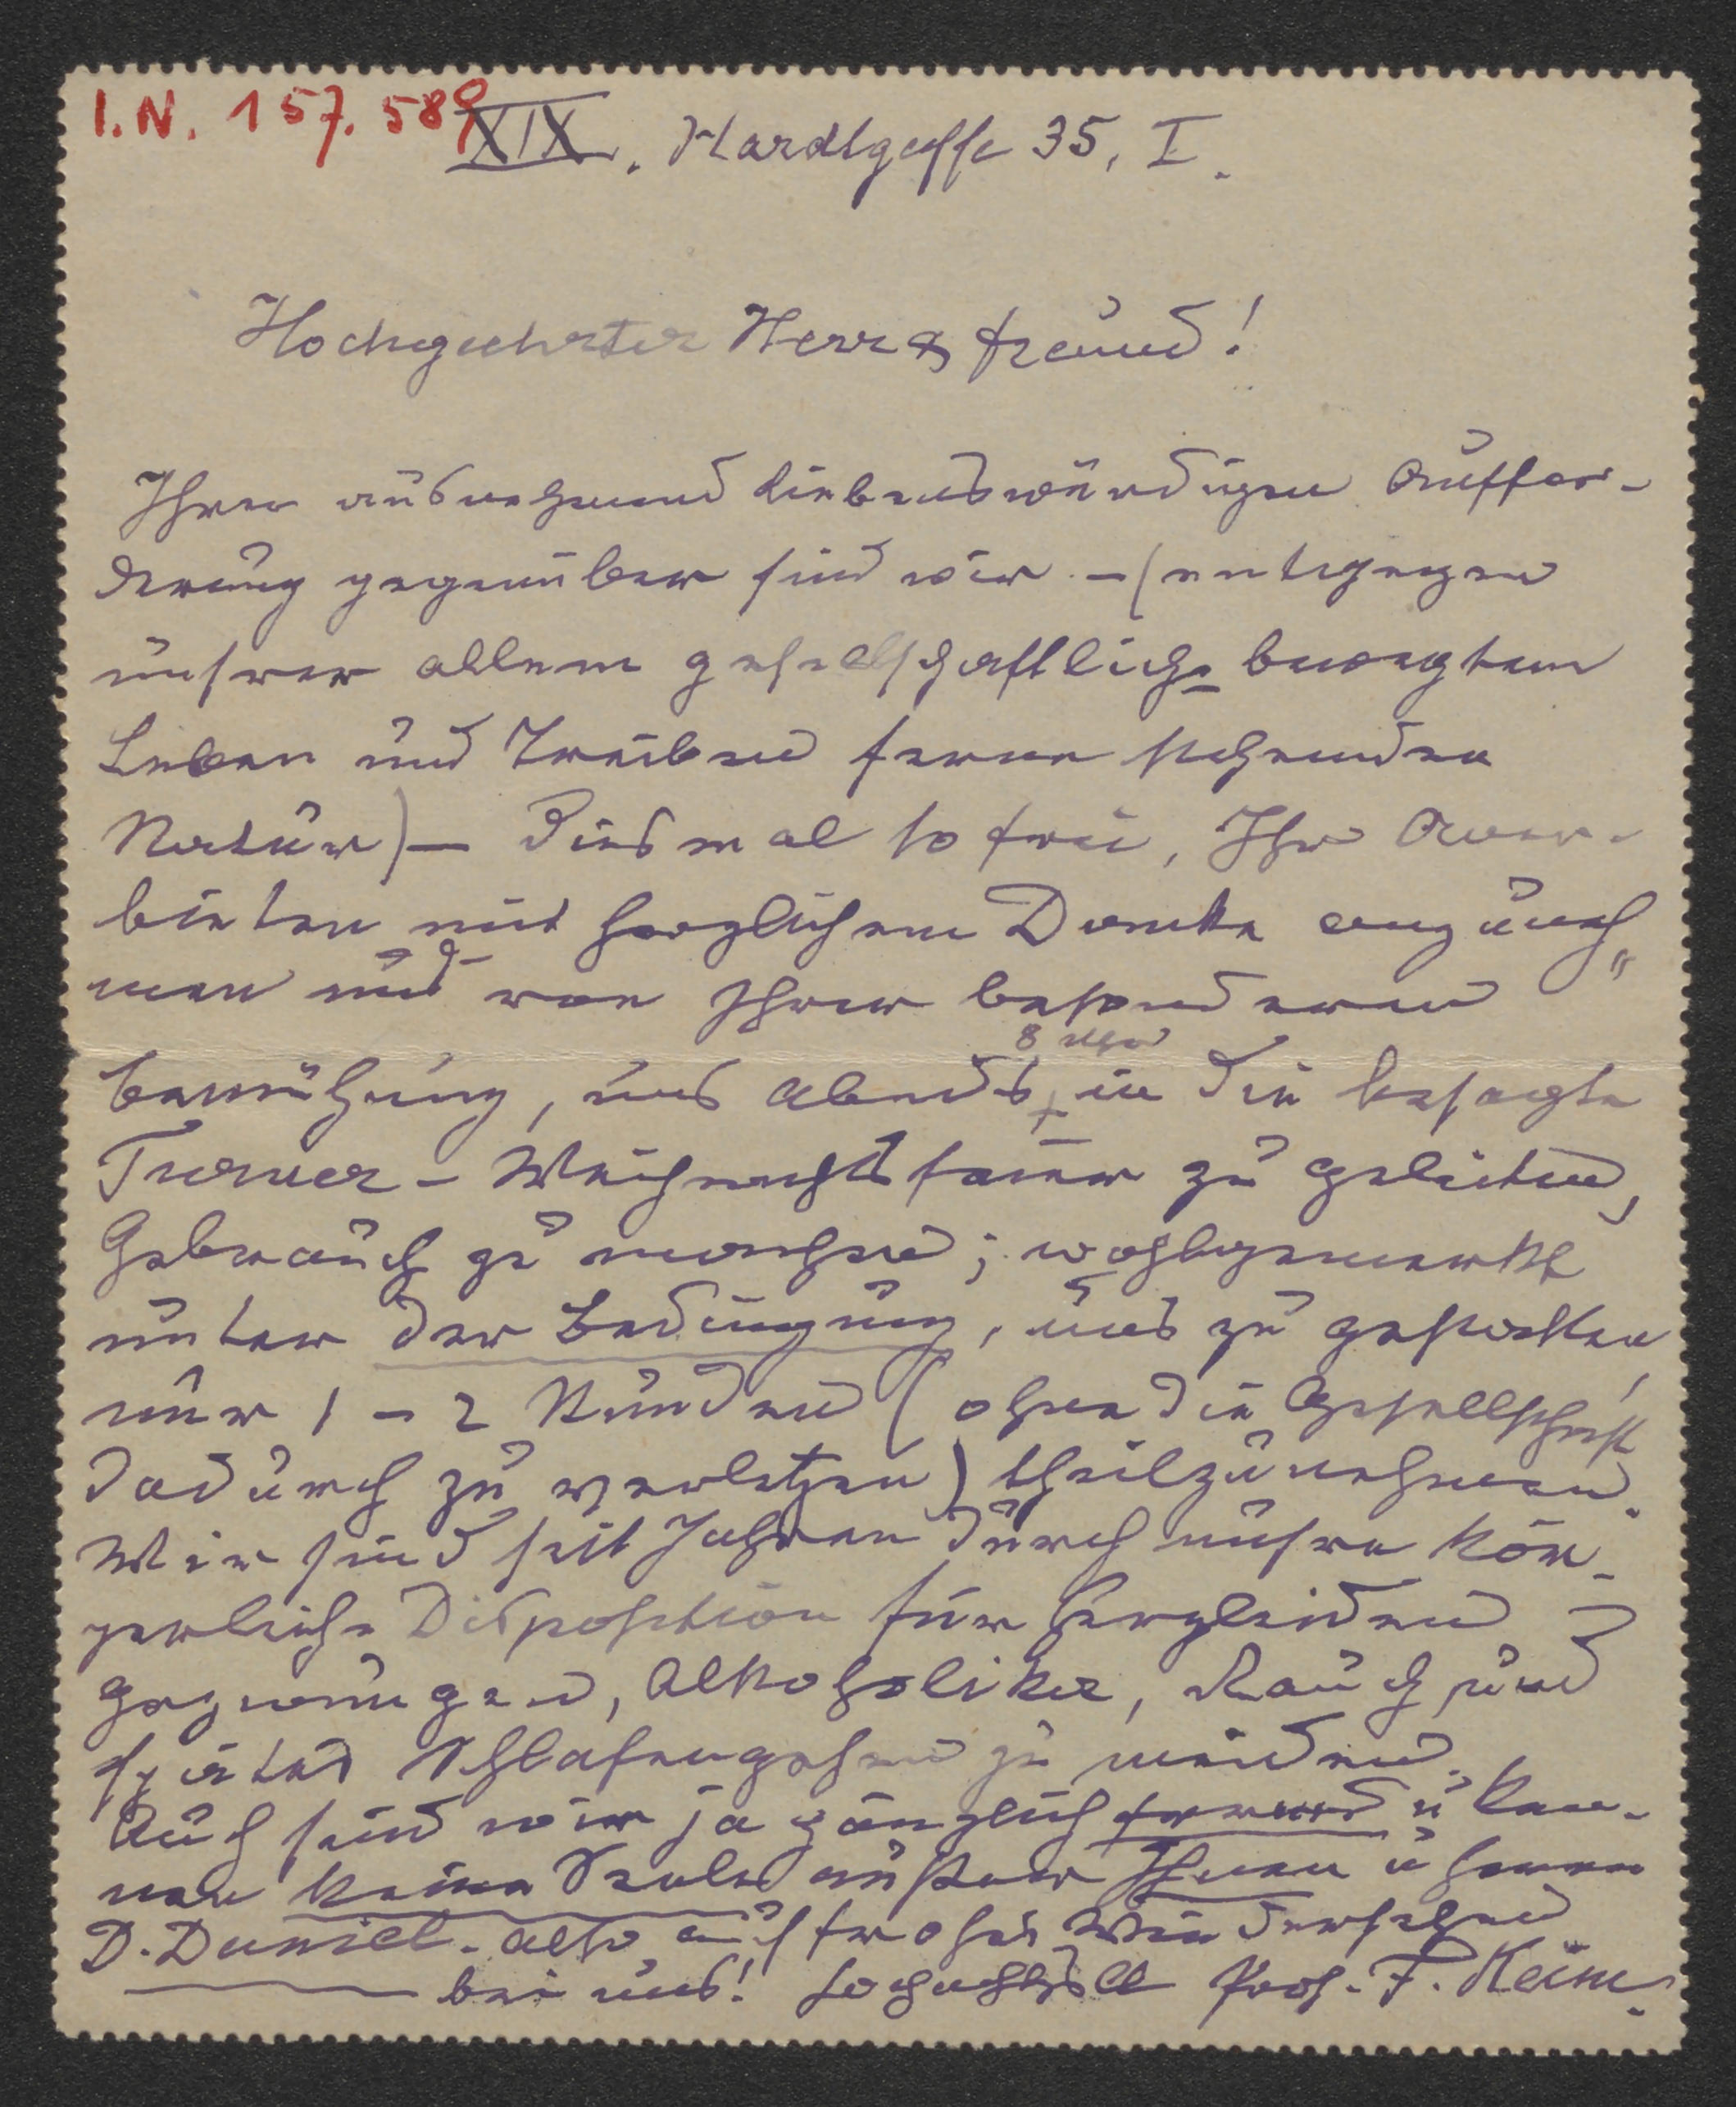 I.N. 157.589
XIX. Hardtgasse 35, I.
Hochgeehrter Herr & Freund!
Ihrer ausnehmend liebenswürdigen Auffor-
derung gegenüber sind wir – (entgegen
unsrer allem gesellschaftlich bewegtem
Leben und Treiben ferne stehenden
Natur) – diesmal so frei, Ihr Aner-
bieten mit herzlichem Danke anzuneh-
men und von Ihrer besonderen
Bemühung, uns abends 8 Uhr in die besagte
Turner-Weihnachtsfeier zu geleiten,
Gebrauch zu machen; wohlgemerkt
unter der Bedingung, uns zu gestatten
nur 1–2 Stunden (ohne die Gesellschaft
dadurch zu verletzen) theilzunehmen.
Wir sind seit Jahren durch unsre kör-
perliche Disposition für Herzleiden
gezwungen, Alkoholiker, Rauch und
spätes Schlafengehen zu meiden.
Auch sind wir ja gänzlich fremd u. ken-
nen keine Seele außer Ihnen u. Herrn
D. Daniel. Also auf frohes Wiedersehen
bei uns! Hochachtsvoll Prof. F. Keim.